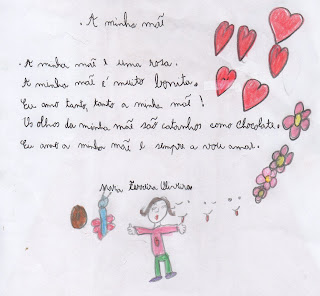 A minha mã
A minha mãi é uma rosa.
A minha mãi é muito bonita.
Eu amo tanto, tanto a minha mãi!
Os olhos da minha mãi são catanhos como chocolate.
Eu amo a minha mãi e sempre a vou amar.
Teixeira Oliveira